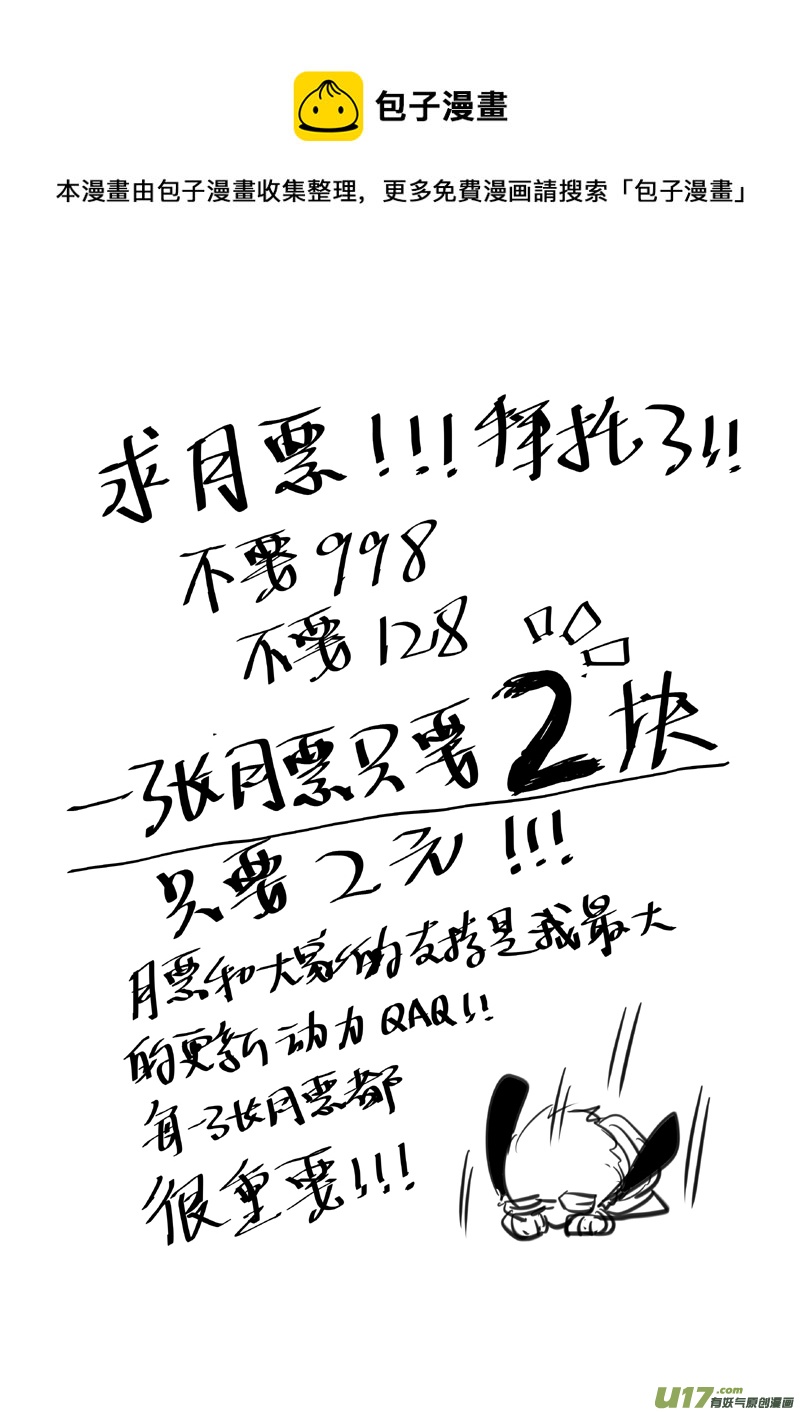 包子漫畫
本漫畫由包子漫畫收集整理，更多免費漫画請搜索「包子漫畫」
求月票!!!拜托了!!
不要998
不要128
一张月票只要2块
只要2元!!!
月票和大家的支持是我最大
的更新动力QAQ!!
每一张月票都
很重要!!!
U17.com
有妖气原创漫画